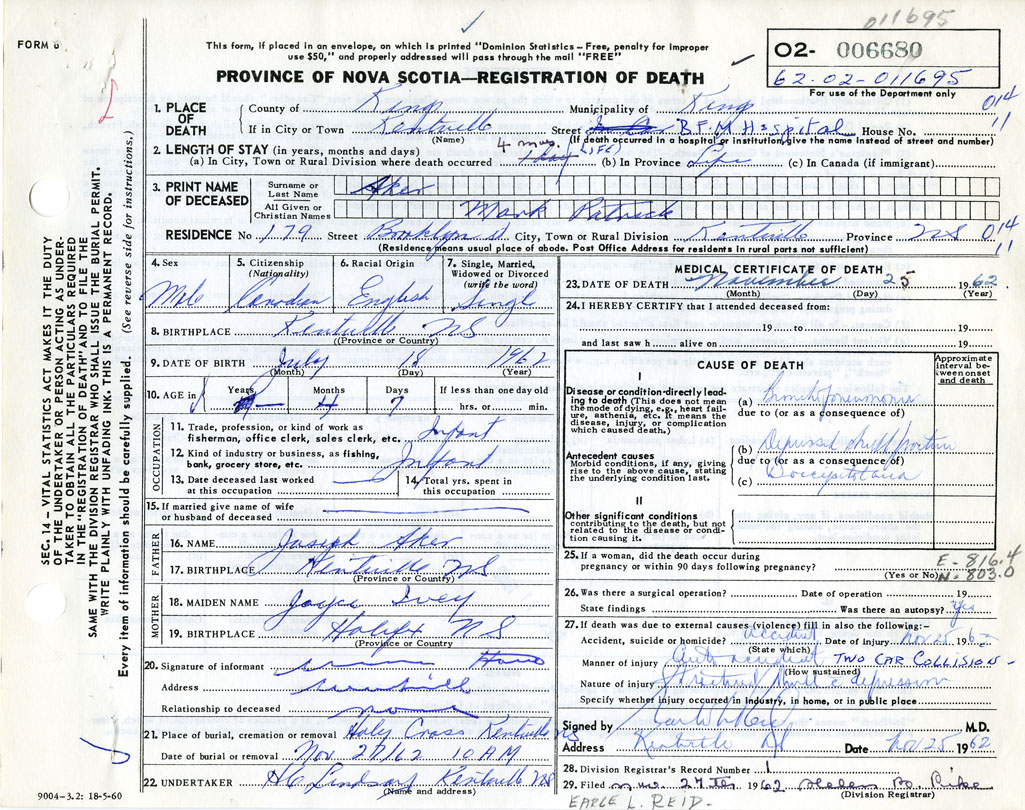 011695
FORM 6
This form, if placed in an envelope, on which is printed "Dominion Statistics – Free, penalty for improper
use $50," and properly addressed will pass through the mail "FREE"
PROVINCE OF NOVA SCOTIA—REGISTRATION OF DEATH
O2- 006680
62.02-011695
For use of the Department only
SEC. 14 – VITAL STATISTICS ACT MAKES IT THE DUTY
OF THE UNDERTAKER OR PERSON ACTING AS UNDER-
TAKER TO OBTAIN ALL THE PARTICULARS REQUIRED
IN THE "REGISTRATION OF DEATH" AND TO FILE THE
SAME WITH THE DIVISION REGISTRAR WHO SHALL ISSUE THE BURIAL PERMIT.
WRITE PLAINLY WITH UNFADING INK. THIS IS A PERMANENT RECORD.
Every item of information should be carefully supplied. (See reverse side for instructions.)
1. PLACE OF DEATH
County of Kings Municipality of Kings 014
If in City or Town Kentville Street B.F.M Hospital House No. 11
(Name) (If death occurred in a hospital or institution, give the name instead of street and number)
2. LENGTH OF STAY (in years, months and days) 4 mos.
(a) In City, Town or Rural Division where death occurred 1 day (b) In Province Life (c) In Canada (if immigrant)
3. PRINT NAME OF DECEASED
Surname or Last Name Aker
All Given or Christian Names Mark Patrick
RESIDENCE No. 179 Street Brooklyn St. City, Town or Rural Division Kentville Province NS 014
(Residence means usual place of abode. Post Office Address for residents in rural parts not sufficient) 11
4. Sex Male
5. Citizenship (Nationality) Canadian
6. Racial Origin English
7. Single, Married, Widowed or Divorced (write the word) Single
8. BIRTHPLACE Kentville NS
(Province or Country)
9. DATE OF BIRTH July 18 1962
(Month) (Day) (Year)
10. AGE in Years Months 4 Days 7 If less than one day old
hrs. or min.
OCCUPATION
11. Trade, profession, or kind of work as
fisherman, office clerk, sales clerk, etc. Infant
12. Kind of industry or business, as fishing,
bank, grocery store, etc. Infant
13. Date deceased last worked
at this occupation
14. Total yrs. spent in
this occupation
15. If married give name of wife
or husband of deceased
FATHER
16. NAME Joseph Aker
17. BIRTHPLACE Kentville NS
(Province or Country)
MOTHER
18. MAIDEN NAME Joyce Ivey
19. BIRTHPLACE Halifx NS
(Province or Country)
20. Signature of informant
Address
Relationship to deceased
21. Place of burial, cremation or removal Holy Cross Kentville NS
Date of burial or removal Nov. 27/62 10 AM
22. UNDERTAKER H C Lindsay Kentville NS
(Name and address)
9004-3.2: 18-5-60
MEDICAL CERTIFICATE OF DEATH
23. DATE OF DEATH November 25 1962
(Month) (Day) (Year)
24. I HEREBY CERTIFY that I attended deceased from:
19 to 19
and last saw h alive on 19
CAUSE OF DEATH
Approximate interval between onset and death
I
Disease or condition directly leading to death (This does not mean the mode of dying, e.g., heart failure, asthenia, etc. It means the disease, injury, or complication which caused death.)
(a) Bronchopneumonia
due to (or as a consequence of)
Antecedent causes
Morbid conditions, if any, giving rise to the above cause, stating the underlying condition last.
(b) Depressed skull
due to (or as a consequence of)
(c)
II
Other significant conditions
contributing to the death, but not related to the disease or condition causing it.
25. If a woman, did the death occur during
pregnancy or within 90 days following pregnancy?
(Yes or No)
E - 816.4
N - 803.0
26. Was there a surgical operation? Date of operation 19
State findings Was there an autopsy? yes
27. If death was due to external causes (violence) fill in also the following:-
Accident, suicide or homicide? Accident Date of injury Nov 25 1962
(State which)
Manner of injury Auto accident TWO CAR COLLISION -
(How sustained)
Nature of injury Fractured skull c depression
Specify whether injury occurred in industry, in home, or in public place
Signed by M.D.
Address Kentville NS Date Nov 25 1962
28. Division Registrar's Record Number 1
29. Filed 27 1962 Helen B.
(Division Registrar)
EARLE L. REID.